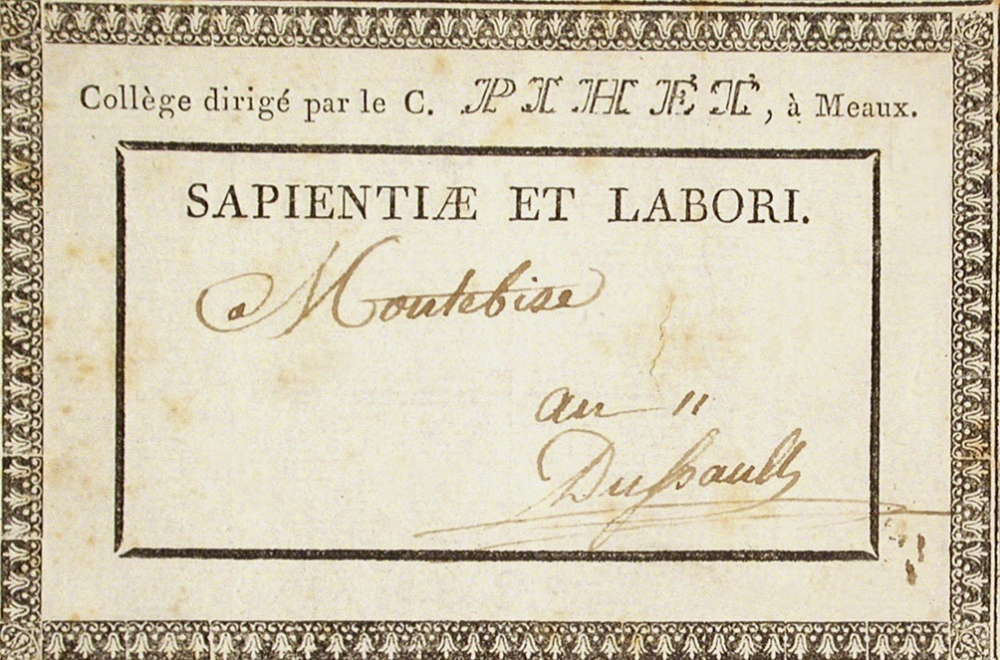 Collège dirigé par le C. PIHET, à Meaux.
SAPIENTIÆ ET LABORI.
a Montebise
an 11
Dussault